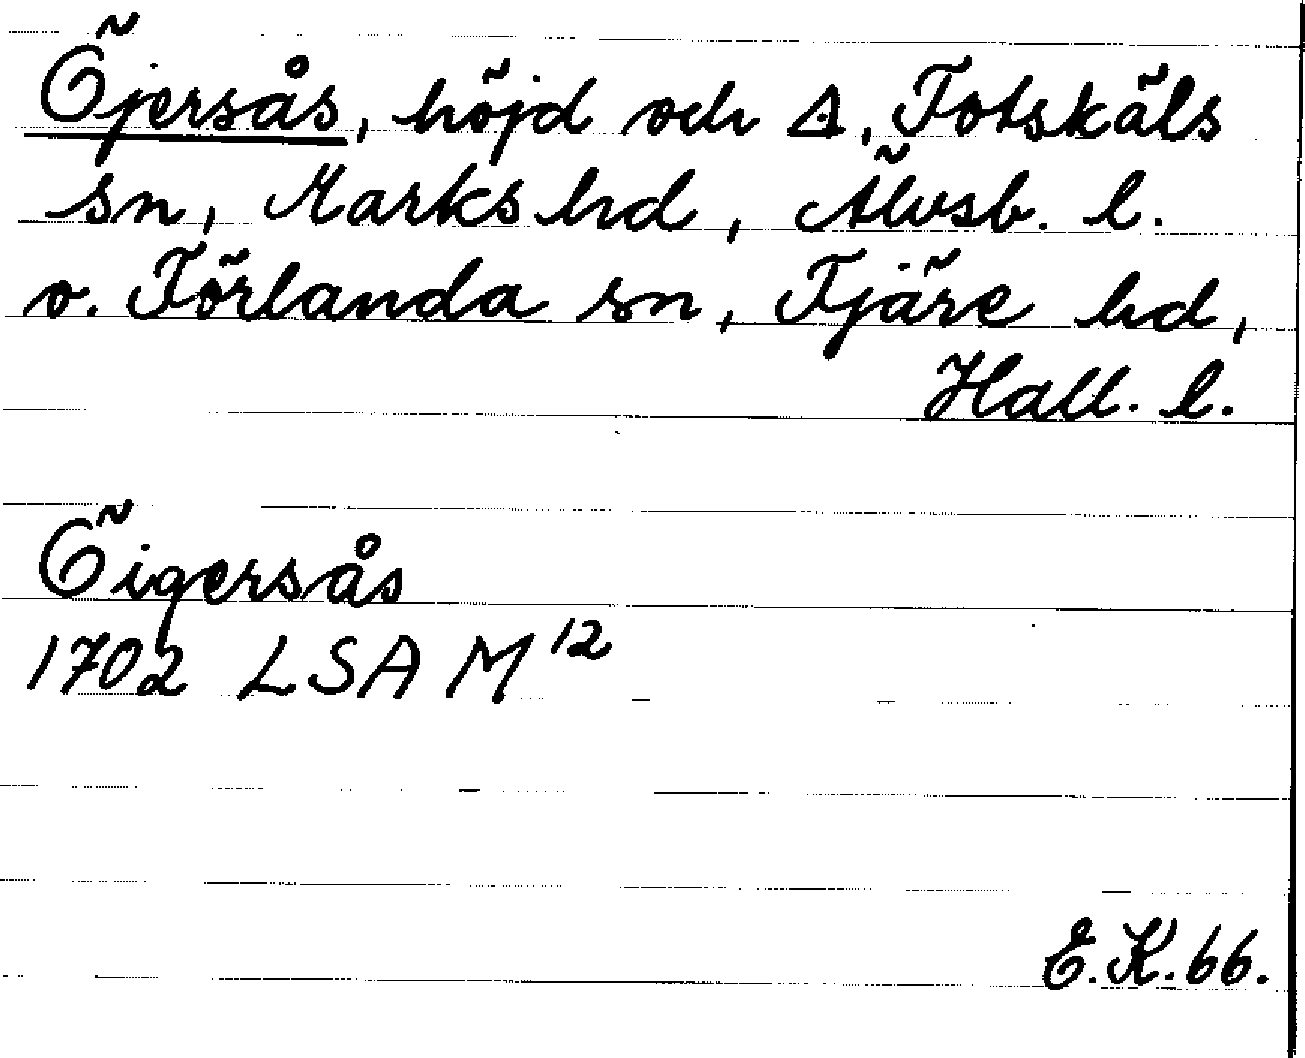 Öjersås, höjd och △, Fotskäls
sn, Marks hd, Älvsb. l.
o. Förlanda sn, Fjäre hd,
Hall. l.
Öigersås
1702 LSA M 12
E.K. 66.